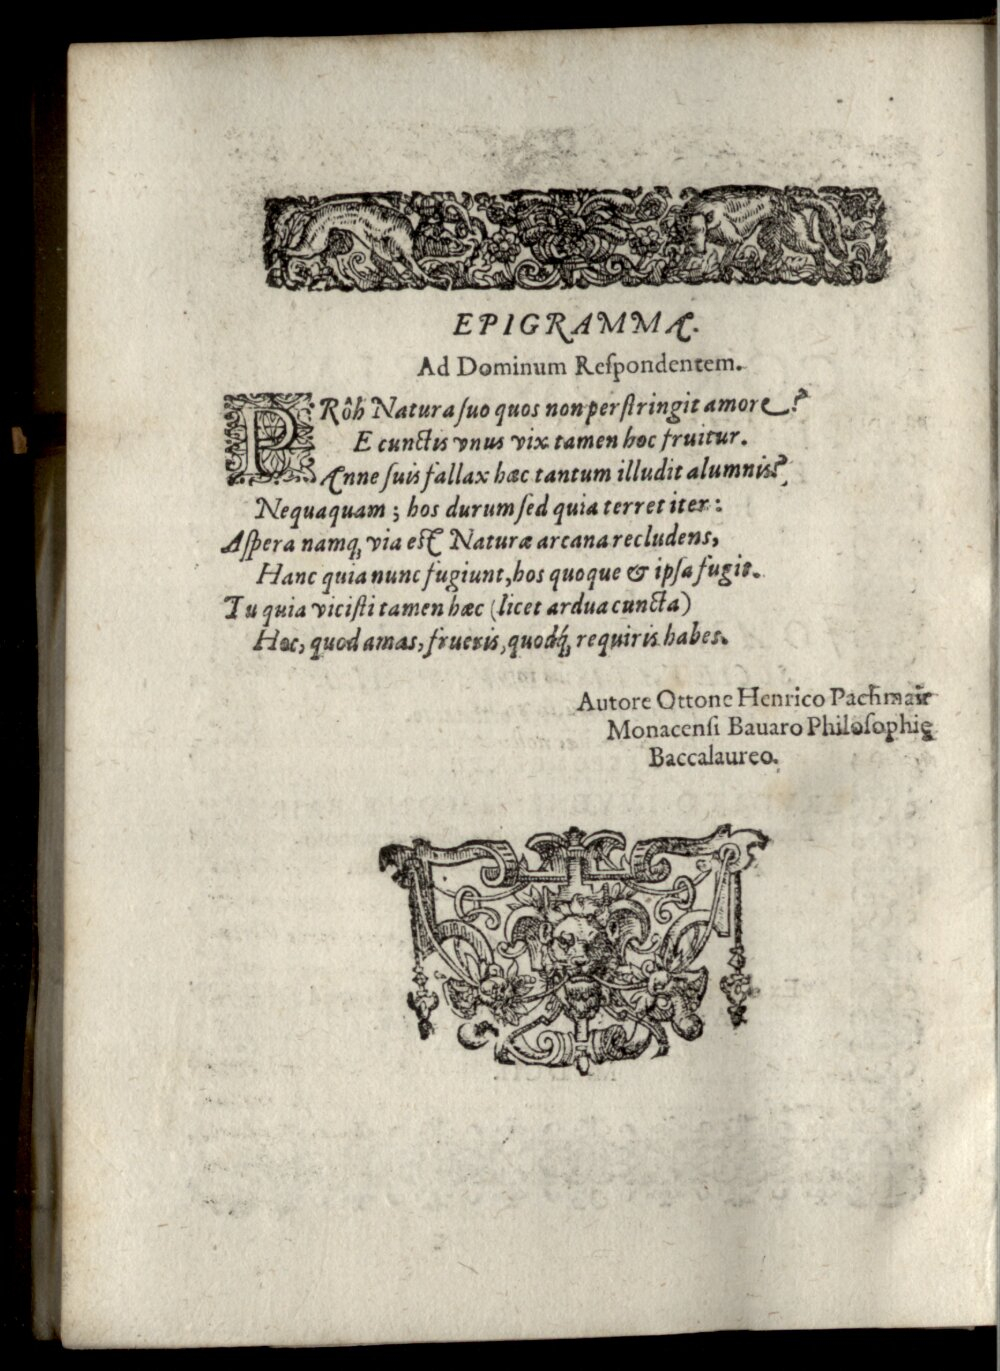 EPIGRAMMA.
Ad Dominum Reſpondentem.
PRôh Natura ſuo quos non perſtringit amore?
E cunctis vnus vix tamen hoc fruitur.
Anne ſuis fallax hæc tantum illudit alumnis?
Nequaquam; hos durum ſed quia terret iter:
Aſpera namq́ via eſt Naturæ arcana recludens,
Hanc quia nunc fugiunt, hos quoque & ipſa fugit.
Tu quia viciſti tamen hæc (licet ardua cuncta)
Hoc, quod amas, frueris, quodq́ requiris habes.
Autore Ottone Henrico Pachmair
Monacenſi Bauaro Philoſophię
Baccalaureo.